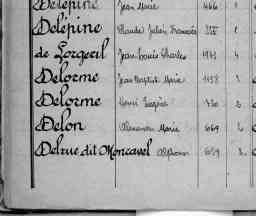 Delépine Jean Marie 466 1
Delépine Claude Julien Francois
de Lorgeril Jean Louis Charles 4
Delorme Jean Baptiste Marie 1138
Delorme Henri Eugène 2
Delon Alexandre Marie 669 2
Delrue dit Moncavel Alphonse 659 2